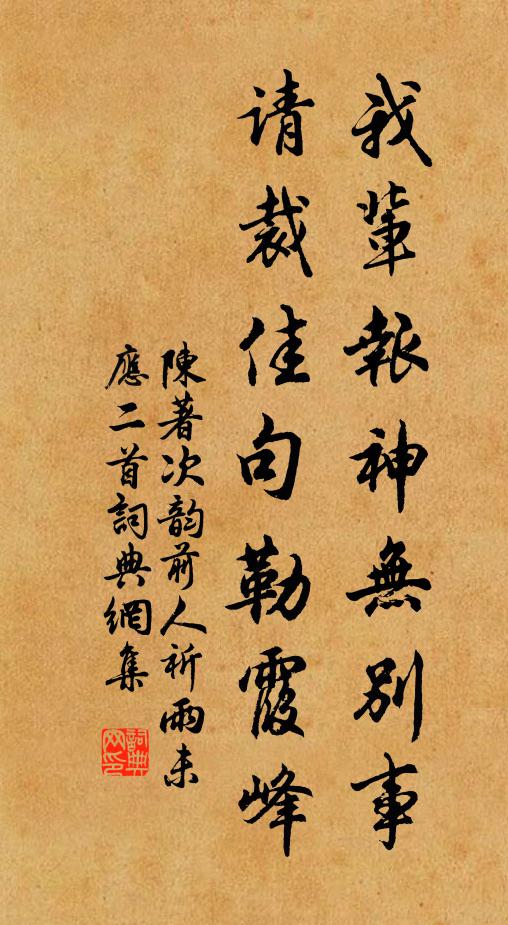 我輩報神無別事
请裁佳句勒霞峰
陳著次韵前人祈雨未
應二首詞典網集
詞典网印